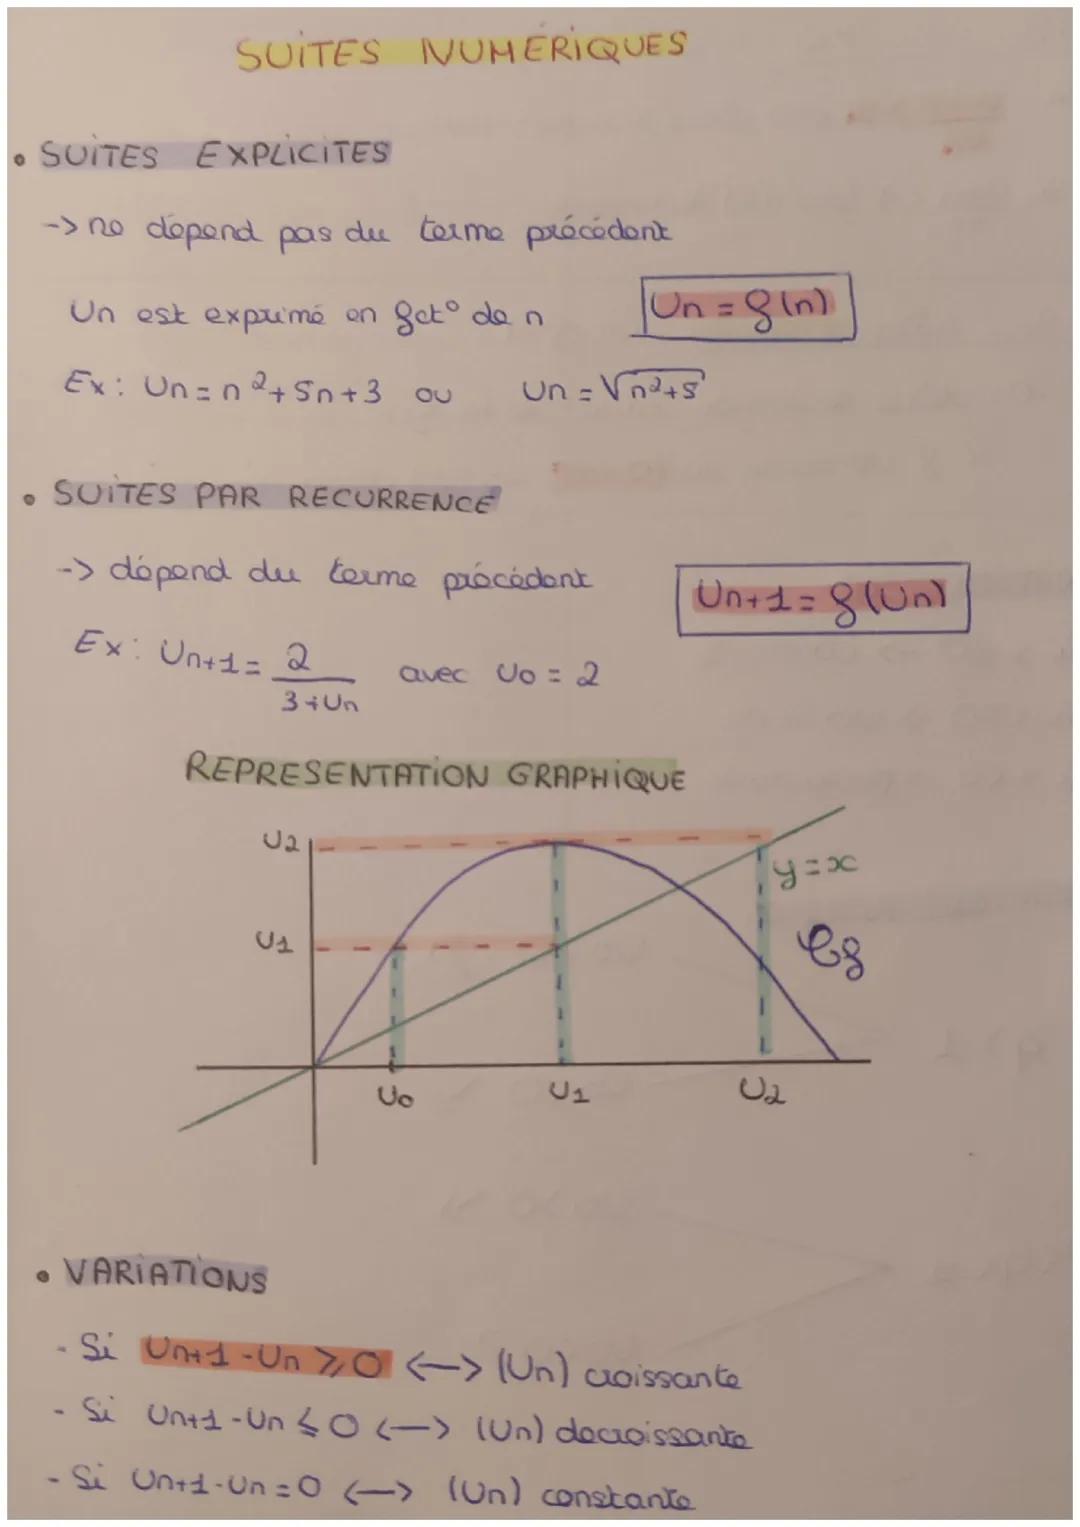 SUITES NUMÉRIQUES
• SUITES EXPLICITES
-> ne dépend pas du terme précédent
Un est exprimé en fct° de n
Un = f(n)
Ex: Un = n²+5n+3 ou Un = √n²+5
• SUITES PAR RECURRENCE
-> dépend du terme précédent
Un+1 = f(Un)
Ex: Un+1 = 2/3+Un avec U0 = 2
REPRESENTATION GRAPHIQUE
U2
y=x
U1
Cf
U0 U1 U2
• VARIATIONS
- Si Un+1 - Un ⩾ 0 <-> (Un) croissante
- Si Un+1 - Un ⩽ 0 <-> (Un) decroissante
- Si Un+1 - Un = 0 <-> (Un) constante